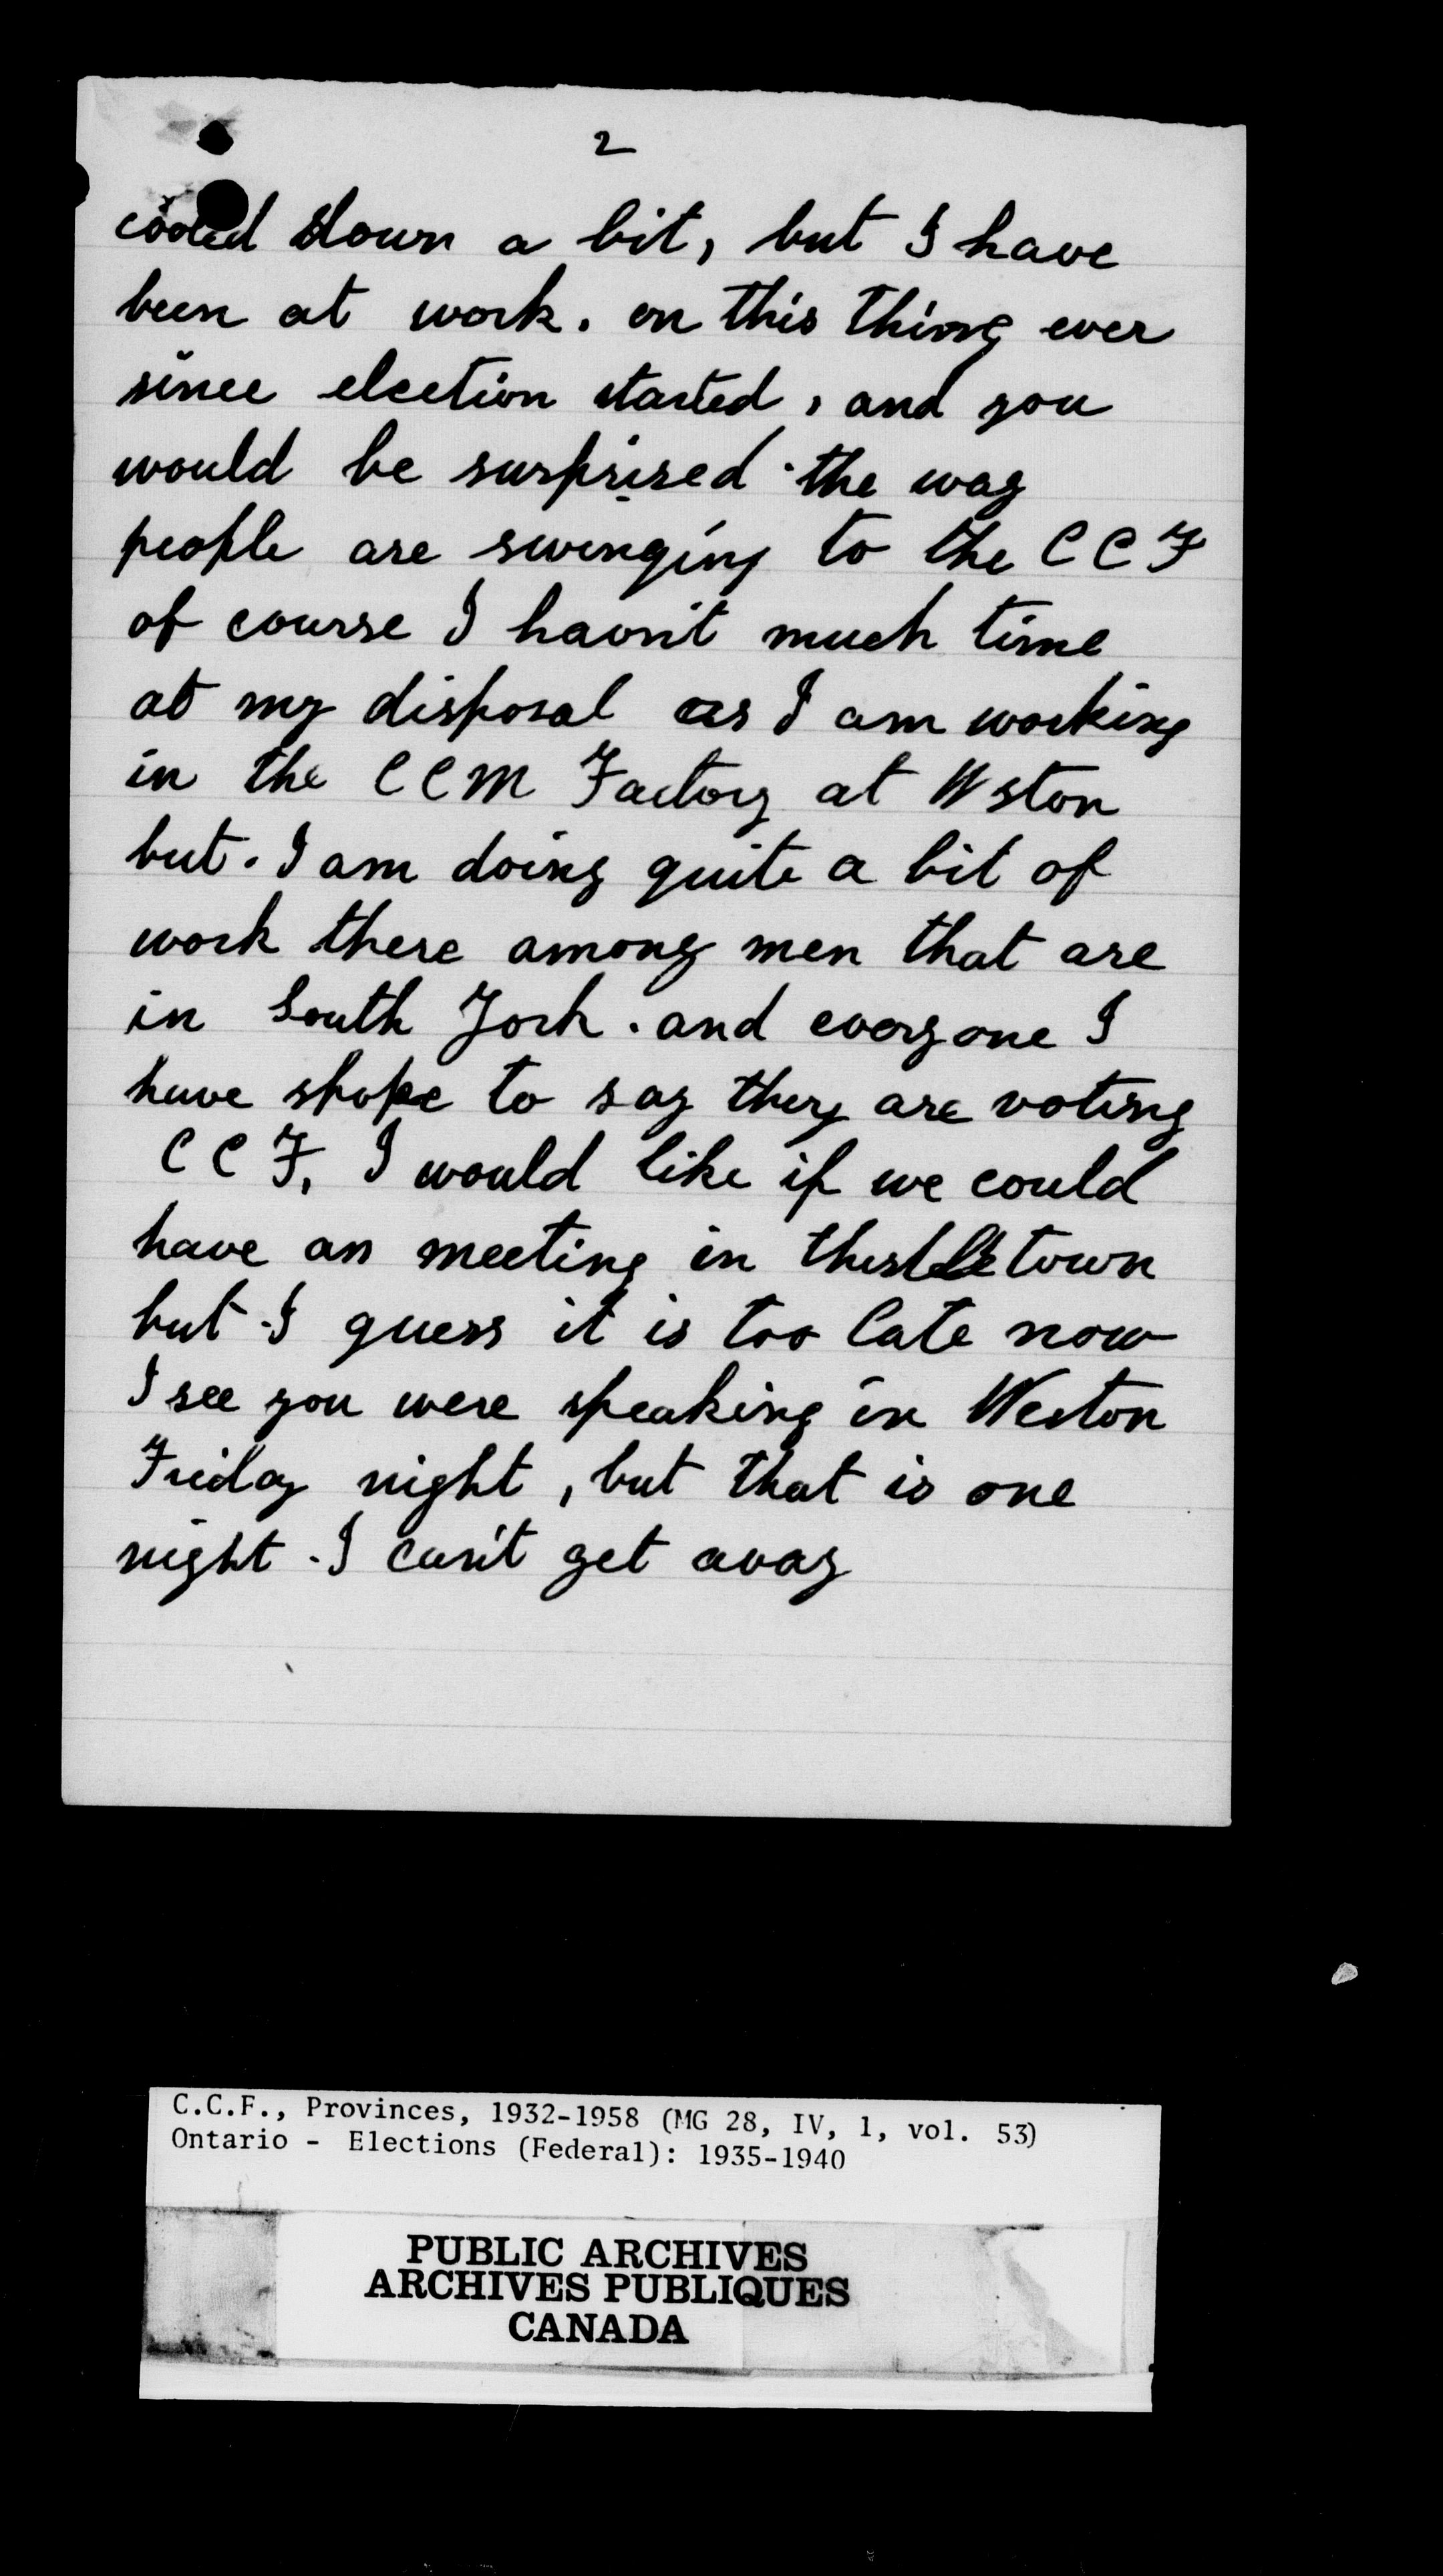 2
cooled down a bit, but I have
been at work. on this thing ever
since election started, and you
would be surprised the way
people are swinging to the CCF
of course I havn't much time
at my disposal as I am working
in the CCM Factory at Wston
but. I am doing quite a bit of
work there among men that are
in South York. and everyone I
have spoke to say they are voting
CCF, I would like if we could
have an meeting in thistletown
but I guess it is too late now
I see you were speaking in Weston
Friday night, but that is one
night. I can't get away
C.C.F., Provinces, 1932-1958 (MG 28, IV, 1, vol. 53)
Ontario - Elections (Federal): 1935-1940
PUBLIC ARCHIVES
ARCHIVES PUBLIQUES
CANADA